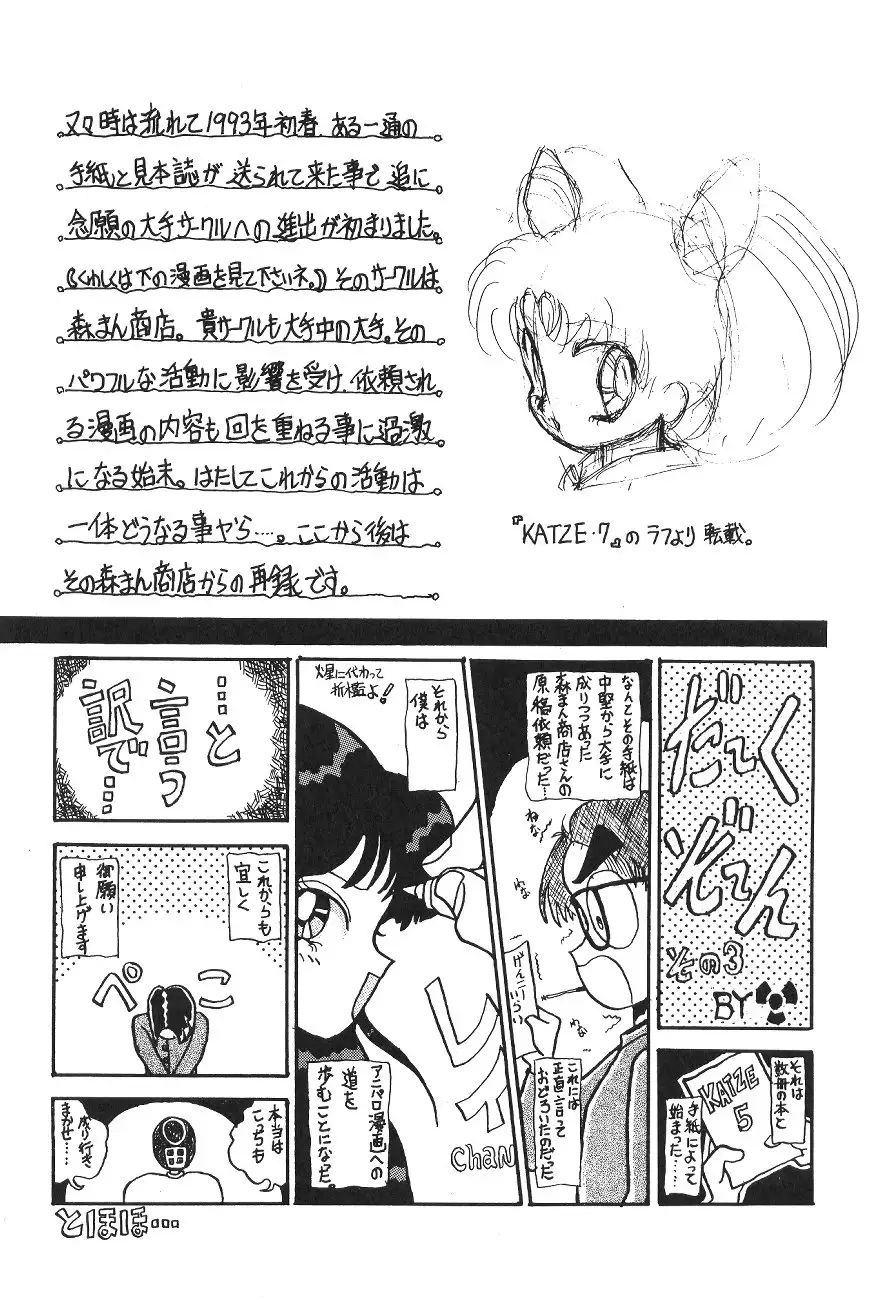 又々時は流れて1993年初春、ある一通の
手紙と見本誌が送られて来た事で追に
念願の大手サークルへの進出が初まりました。
(くわしくは下の漫画を見て下さいネ。)そのサークルは
森まん商店。貴サークルも大手中の大手。その
パワフルな活動に影響を受け、依頼され
る漫画の内容も回を重ねる事に過激
になる始末。はたしてこれからの活動は
一体どうなる事やら…。ここから後は
その森まん商店からの再録です。
『KATZE・7』のラフより転載。
だーく
ぞーん
その3
BY
それは
数冊の本と
手紙によって
始まった…
KATZE
5
なんとその手紙は
中堅から大手に
成りつつあった
森まん商店さんの
原稿依頼だった…
わな
わな
わな
げんこー
いらい
これには
正直言って
おどろいたのだった
火星に代わって
折檻よ!
それから
僕は
レイ
Chan
アニパロ漫画への
道を
歩むことになった。
…と
言う
訳で…
これからも
宜しく
御願い
申し上げます
ペこ
本当は
こっちも
成り行き
まかせ……
とほほ…